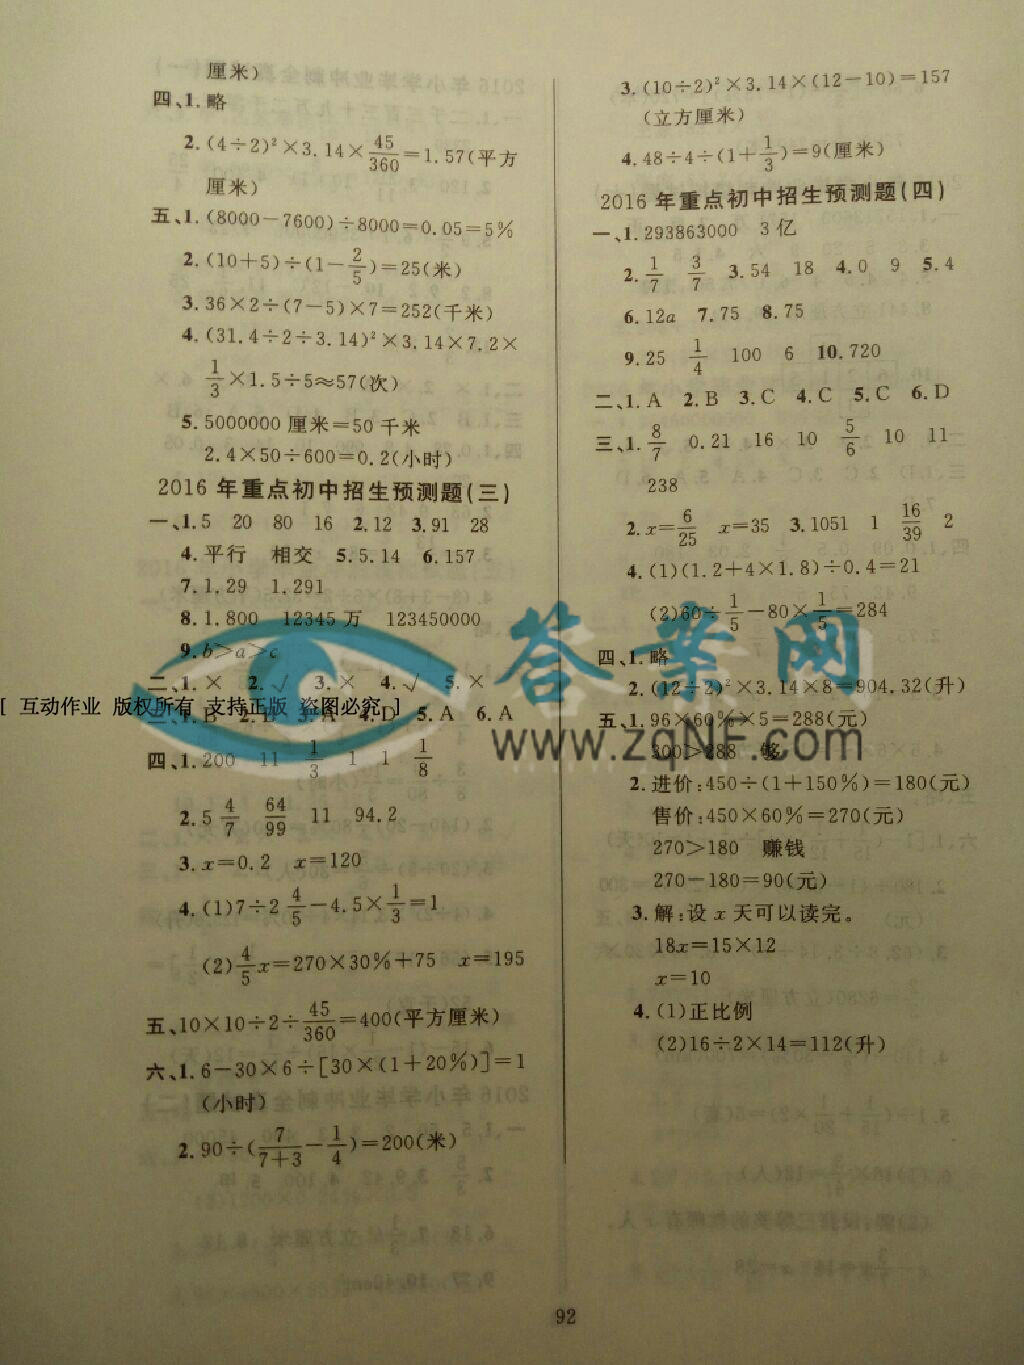 厘米)
四、1. 略
2. (4÷2)²×3.14×45/360=1.57(平方
厘米)
五、1. (8000-7600)÷8000=0.05=5%
2. (10+5)÷(1-2/5)=25(米)
3. 36×2÷(7-5)×7=252(千米)
4. (31.4÷2÷3.14)²×3.14×7.2×
1/3×1.5÷5≈57(次)
5. 5000000厘米=50千米
2.4×50÷600=0.2(小时)
2016年重点初中招生预测题(三)
一、1. 5 20 80 16 2. 12 3. 91 28
4. 平行 相交 5. 5.14 6. 157
7. 1.29 1.291
8. 1.800 12345万 123450000
9. b>a>c
二、1. × 2. √ 3. × 4. √ 5. ×
三、1. B 2. B 3. A 4. D 5. A 6. A
四、1. 200 11 1/3 1 1 1/8
2. 5 4/7 64/99 11 94.2
3. x=0.2 x=120
4. (1)7÷2 4/5-4.5×1/3=1
(2)4/5x=270×30%+75 x=195
五、10×10÷2÷45/360=400(平方厘米)
六、1. 6-30×6÷[30×(1+20%)]=1
(小时)
2. 90÷(7/7+3-1/4)=200(米)
3. (10÷2)²×3.14×(12-10)=157
(立方厘米)
4. 48÷4÷(1+1/3)=9(厘米)
2016年重点初中招生预测题(四)
一、1. 293863000 3亿
2. 1/7 3/7 3. 54 18 4. 0 9 5. 4
6. 12a 7. 75 8. 75
9. 25 1/4 100 6 10. 720
二、1. A 2. B 3. C 4. C 5. C 6. D
三、1. 8/7 0.21 16 10 5/6 10 11
238
2. x=6/25 x=35 3. 1051 1 16/39 2
4. (1)(1.2+4×1.8)÷0.4=21
(2)60÷1/5-80×1/5=284
四、1. 略
2. (12÷2)²×3.14×8=904.32(升)
五、1. 96×60%×5=288(元)
300>288 够
2. 进价:450÷(1+150%)=180(元)
售价:450×60%=270(元)
270>180 赚钱
270-180=90(元)
3. 解:设x天可以读完。
18x=15×12
x=10
4. (1)正比例
(2)16÷2×14=112(升)
92
答案网
www.zqNF.com
[ 互动作业 版权所有 支持正版 盗图必究 ]